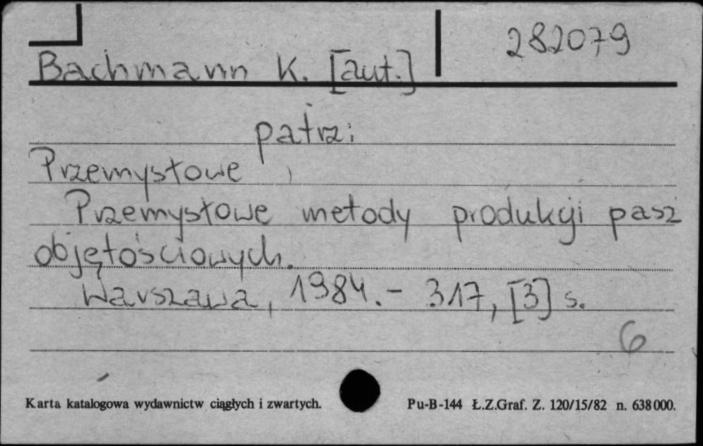 282079
Bachmann K. [aut.]
patrz:
Przemysłowe
Przemysłowe metody produkcji pasz
objętościowych.
Warszawa, 1984. - 317, [3] s.
6
Karta katalogowa wydawnictw ciągłych i zwartych. Pu-B-144 Ł.Z.Graf. Z. 120/15/82 n. 638000.